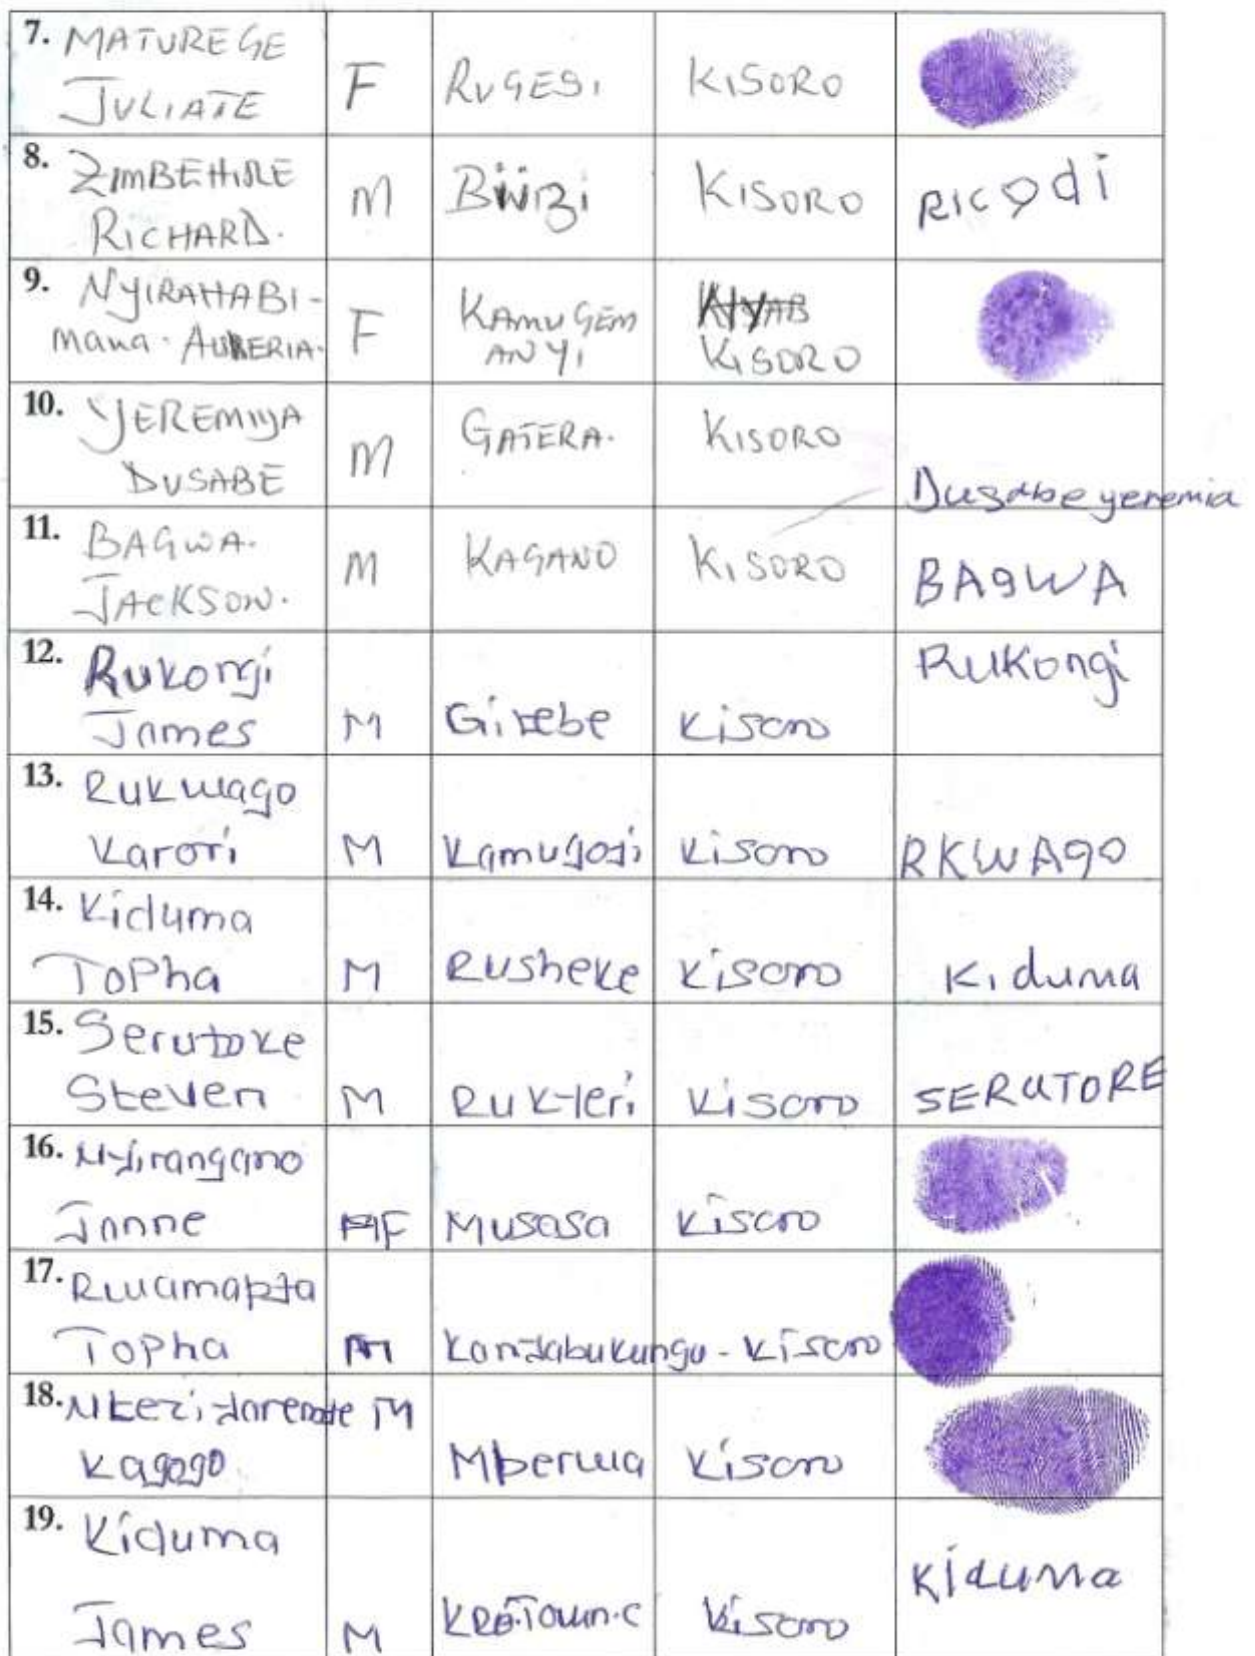 7. MATUREGE
JULIATE F RUGESI KISORO
8. ZIMBEHIRE
RICHARD. M KISORO RICODI
9. NYIRAHABI-
mana. AURERIA. F KAMUGEM
ANYI KISORO
10. YEREMIYA
DUSABE M GATERA. KISORO
Dusabe yeremia
11. BAGWA.
JACKSON. M KAGANO KISORO BAGWA
12. Rukongi
James M Gitebe Kisoro Rukongi
13. Rukwago
Karori M Kisoro RKWAGO
14. Kiduma
Topha M Rusheke Kisoro Kiduma
15. Serutoke
Steven M Kisoro SERUTORE
16. Nyirangano
Janne F Musasa Kisoro
17.
Topha M Kisoro
18. M
Kagogo Mberwa Kisoro
19. Kiduma
James M Kisoro Kiduma